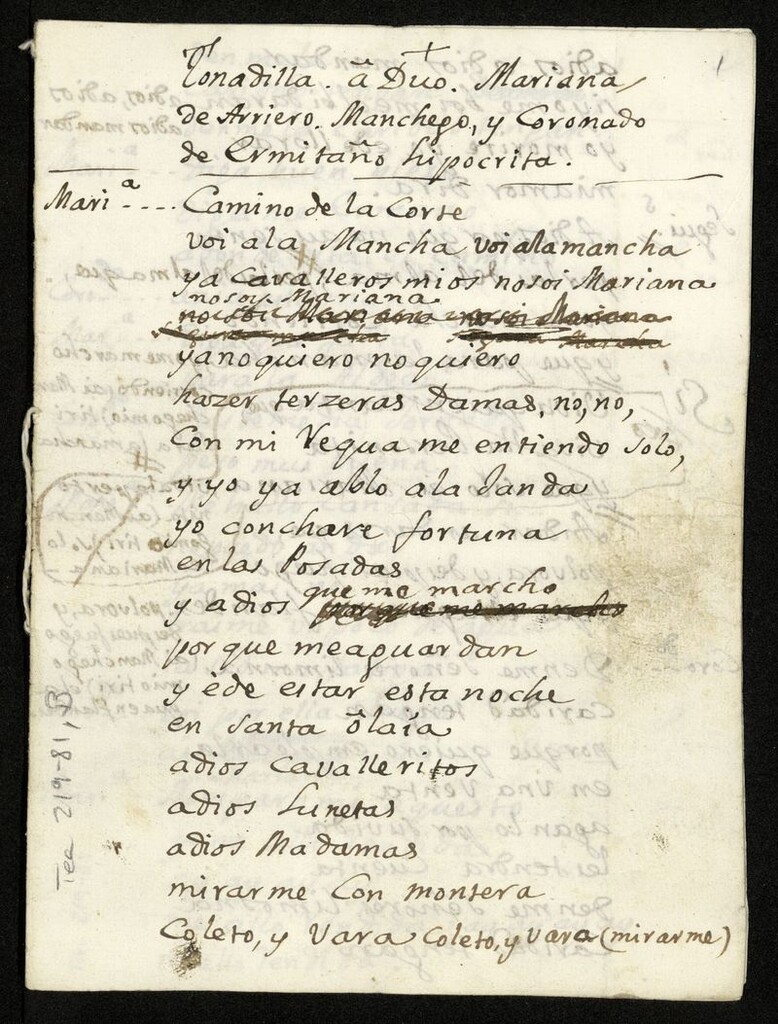 1
Tonadilla. a Duo. Mariana
de Arriero. Manchego, y Coronado
de Ermitaño hipocrita.
Mari.ª ---- Camino de la Corte
voi ala Mancha voi alamancha
ya Cavalleros mios nosoi Mariana
nosoi Mariana
nosoi Mariana nosoi Mariana
yanoquiero noquiero
hazer terzeras Damas, no, no,
Con mi Yegua me entiendo solo,
y yo ya ablo ala
yo conchave fortuna
en las Posadas
que me marcho
y adios porque me marcho
por que meaguardan
y ède estar esta noche
en santa ôlaia
adios Cavalleritos
adios Lunetas
adios Madamas
mirarme Con montera
Coleto, y Vara Coleto, y Vara (mirarme)
Tea 219-81, B